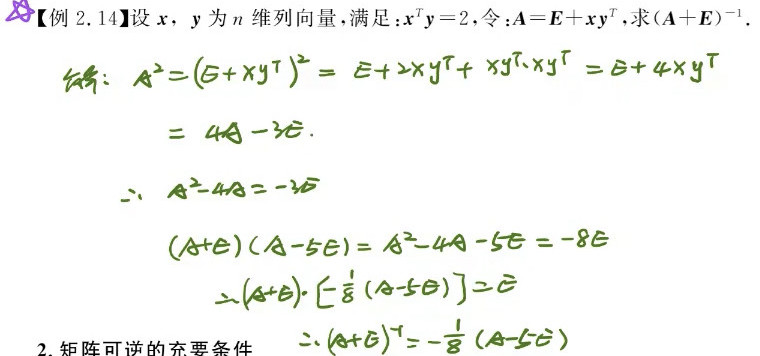 【例 2.14】设 x, y 为 n 维列向量,满足:xᵀy=2,令:A=E+xyᵀ,求(A+E)⁻¹.
解: A²=(E+xyᵀ)²= E+2xyᵀ+ xyᵀ·xyᵀ = E+4xyᵀ
= 4A-3E.
∴ A²-4A=-3E
(A+E)(A-5E)= A²-4A-5E=-8E
∴(A+E)·[-1/8(A-5E)]=E
2. 矩阵可逆的充要条件 ∴(A+E)⁻¹=-1/8(A-5E)